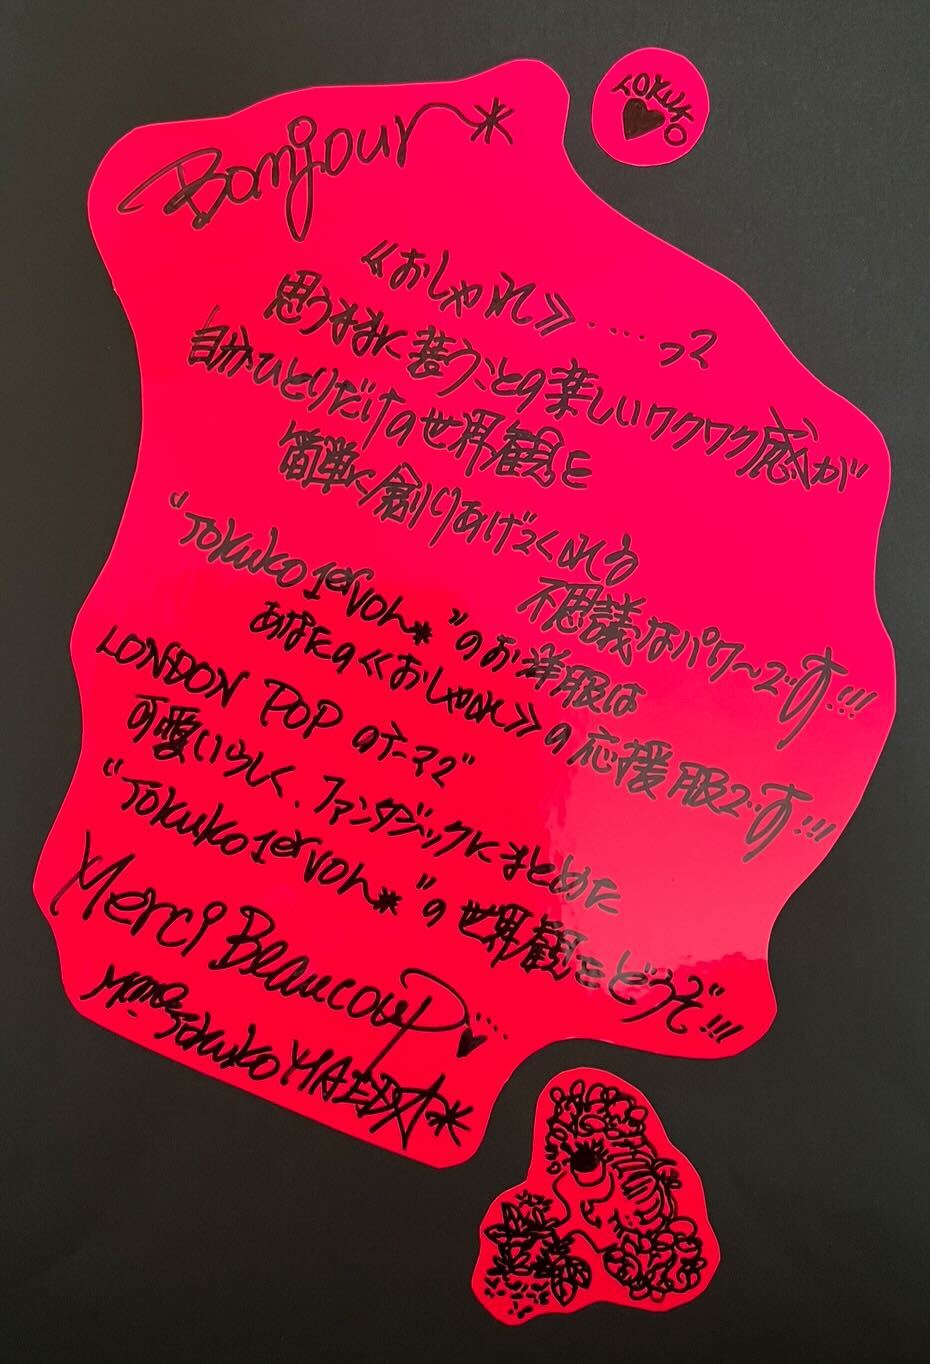 TOKUKO
Bonjour*
《おしゃれ》......って
思うままに装うことの楽しいワクワク感が
自分ひとりだけの世界観を
簡単に創りあげてくれる
不思議なパワ〜です!!!
"Tokuko 1er vol*"のお洋服は
あなたの《おしゃれ》の応援服です!!!
LONDON POP のテーマで
可愛いらしく、ファンタジックにまとめた
"Tokuko 1er vol*"の世界観をどうぞ!!!
Merci Beaucoup....
Tokuko MAEDA*